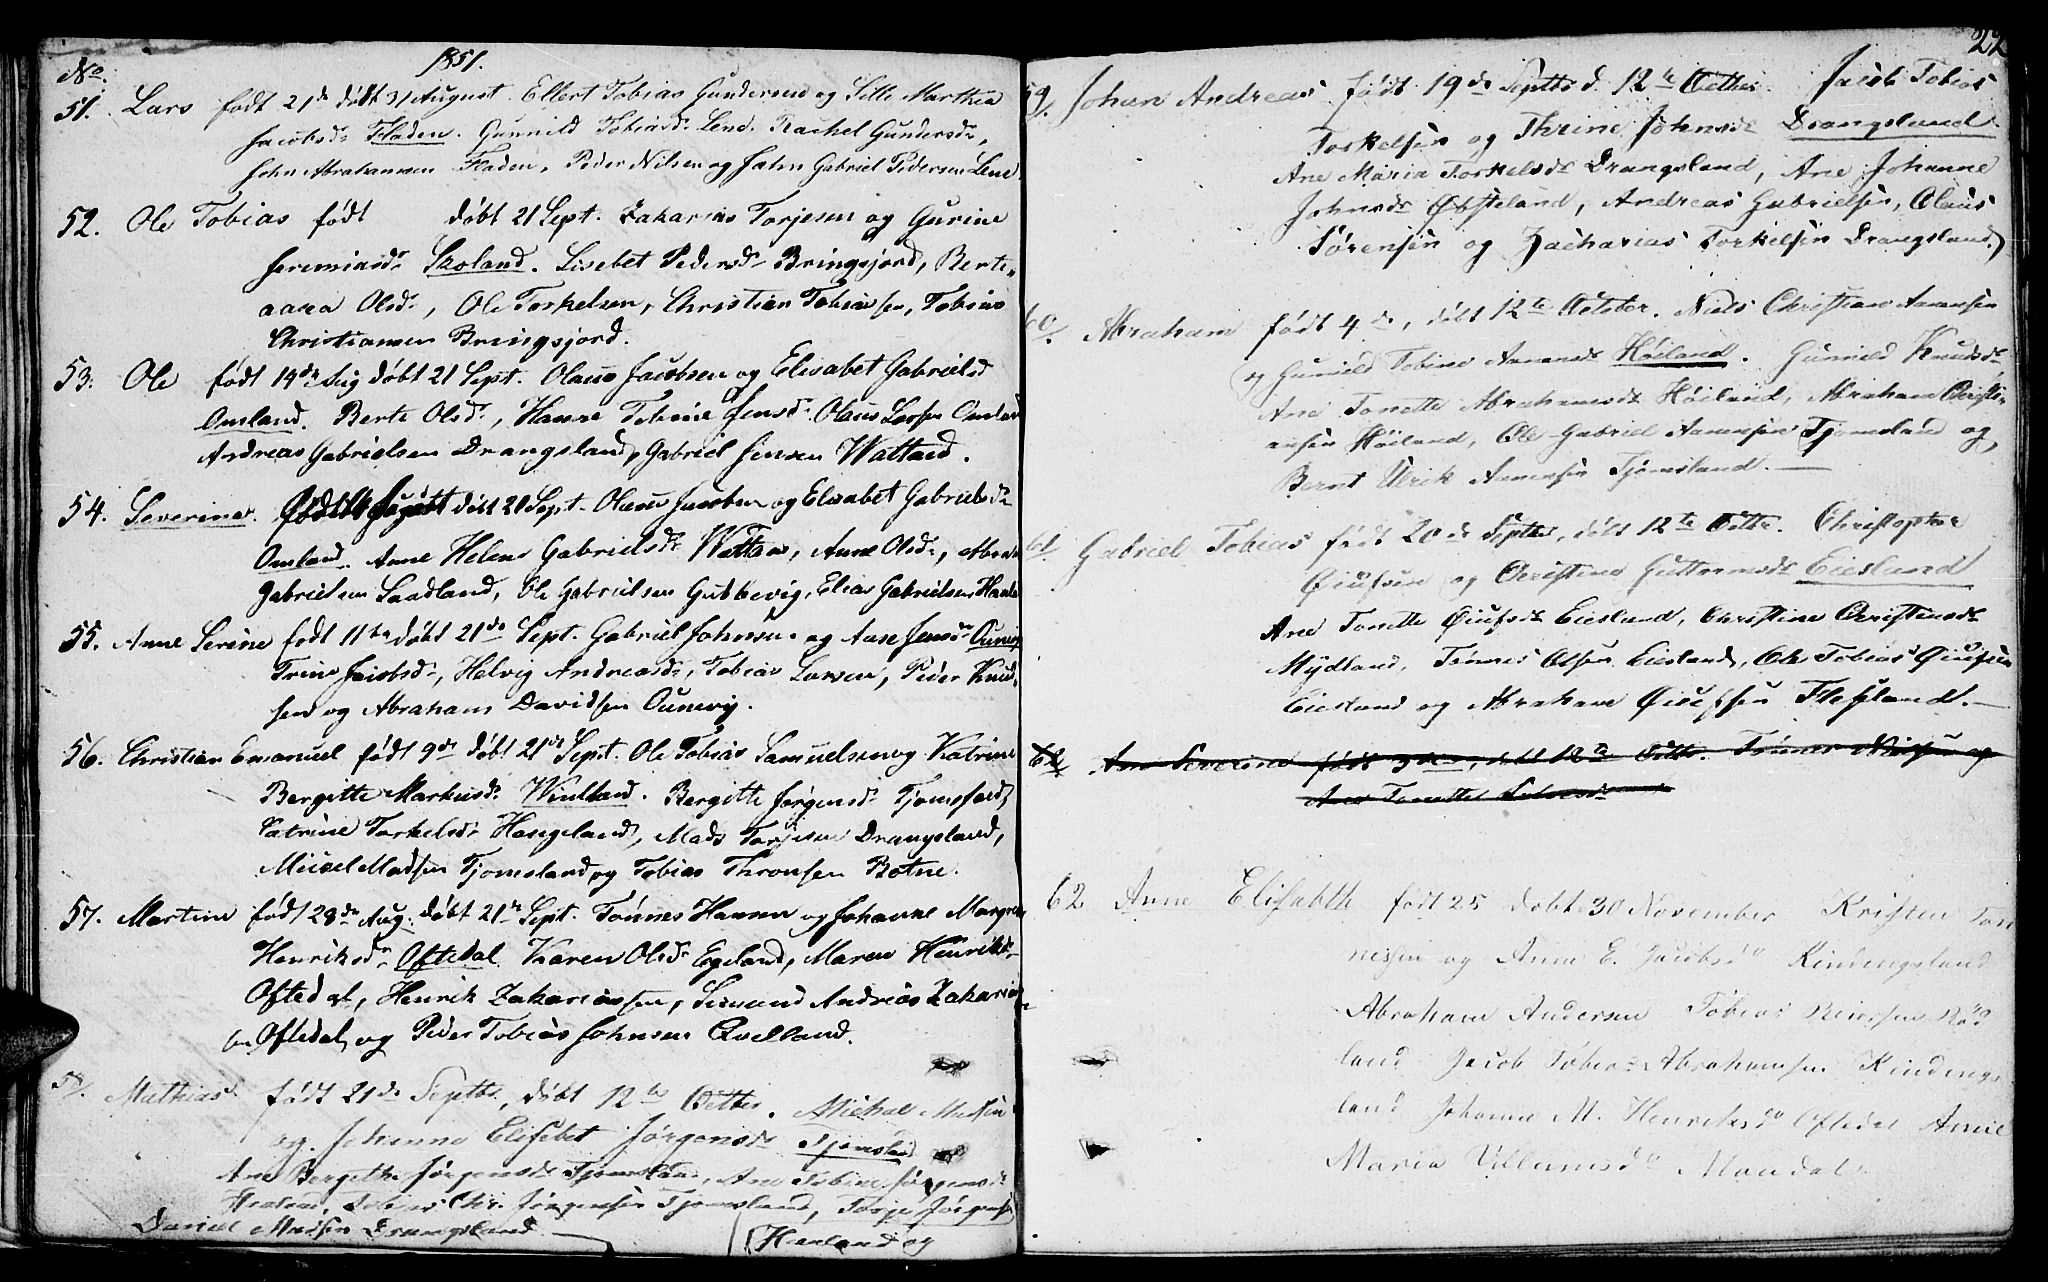 No. 1851.
51. Lars født 21de døbt 31 August Ellert Tobias Gundersen og Sille Marthea
Jacobsdr Fladen. Gunnild Tobiasdr Lene. Rachel Gundersdr,
John Abrahamsen Fladen, Peder Nilsen og John Gabriel Pedersen Lene
52. Ole Tobias født døbt 21 Sept. Zakarias Torjesen og Gurine
Jeremiasdr Skoland. Lisebet Pedersdr Bringsjord, Berte
Olsdr, Ole Torkelsen, Christian Tobiassen, Tobias
Christiansen Bringsjord.
53. Ole født 14de Aug døbt 21 Sept. Olaus Jacobsen og Elisabet Gabrielsd
Omland. Berte Olsdr, Hanne Tobine Jensdr Olaus Larsen Omland
Andreas Gabrielsen Drangsland, Gabriel Jensen Watland.
54. Severine. født August døbt 21 Sept. Olaus Jacobsen og Elisabet Gabrielsdr
Omland. Anne Helene Gabrielsdr Watlan, Anne Olsdr,
Gabrielsen Saadland, Ole Gabrielsen Gubbevig, Elias Gabrielsen
55. Anne Serine født 11te døbt 21de Sept. Gabriel Johnsen og Anne Jensdr
Trine Jacobsdr, Helvig Andreasdr, Tobias Larsen, Peder Knud-
sen og Abraham Davidsen Ounevig.
56. Christian Emanuel født 9de døbt 21de Sept. Ole Tobias Samuelsen og Katrine
Bergitte Markusdr Winlland. Bergitte Jørgensdr Tjomsland,
Katrine Torkelsdr Haugeland, Mads Torjesen Drangsland,
Mikel Madsen Tjomsland og Tobias Thronsen Botne.
57. Martine født 28de Aug. døbt 21te Sept. Tønnes Hansen og Johanne Margrete
Henriksdr Oftedal. Karen Olsdr Egeland, Maren Henriksdr
Oftedal, Henrik Zakariassen, Simund Andreas Zakarias-
sen Oftedal og Peder Tobias Johnsen Qvelland.
58/. Mathias født 21de Septbr, døbt 12te Octbr. Michal Madsen
og Johanne Elisebet Jørgensdr Tjomsland
Ane Bergithe Jørgensdr Tjomsland, Ane Tobine Jørgensdr
Chr. Jørgensen Tjomsland, Torje Jørgensen
Daniel Madsen Drangsland. [Heeland og
22
59/. Johan Andreas født 19de Septbr d. 12te Octbr. Jacob Tobias
Torkelsen og Thrine Johnsdr Drangsland.
Ane Maria Torkelsdr Drangsland, Ane Johanne
Johnsdr Øbsteland, Andreas Gabrielsen, Olaus
Sørensen og Zacharias Torkelsen Drangsland
60/. Abraham født 4de, døbt 12te October. Niels Christian Aanensen
og Gunild Tobine Aanensdr Höiland. Gunild Knudsdr
Ane Tonette Abrahamsdr Höiland, Abraham Christi-
ansen Höiland, Ole Gabriel Aanensen Tjomsland og
Bernt Ulrik Aanensen Tjomsland.
61/. Gabriel Tobias født 20de Septbr, døbt 12te Octbr. Christopher
Øiufsen og Christine Guttormsdr Eiesland
Ane Tonette Øiufsdr Eiesland, Christine Christensdr
Mydland, Tönnes Olsen Eiesland, Ole Tobias Øiufsen
Eiesland og Abraham Øiufsen Fleseland.
62/ Ane Severine født 3de, døbt 12te Octbr. Tönnes Nilsen og
Ane Tonette
62 Anne Elisabth født 25 døbt 30 November Kristen Ton
nessen og Anne E. Jacobsdr Rindingsland
Abraham Andersen Tobias Reiersen Röd
land Jacob Tobias Abrahamsen Rindings
land Johanne M. Henriksdr Oftedal Anne
Maria Villumsdr Mandal.